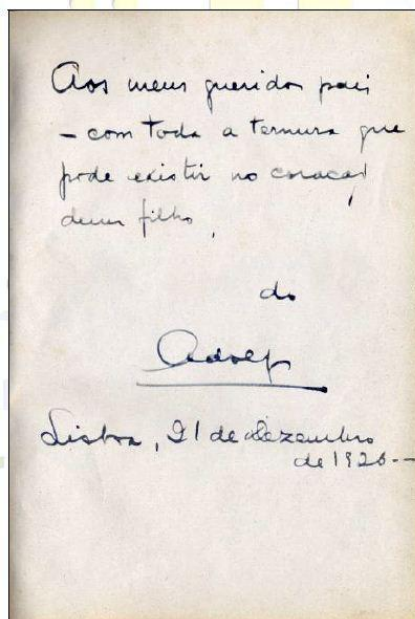 Aos meus queridos pais
- com toda a ternura que
pode existir no coração
dum filho,
do
Adolfo
Lisboa, 21 de Dezembro
de 1926 --